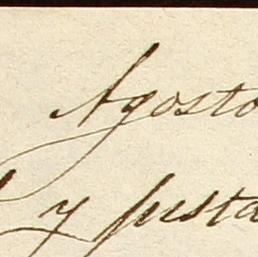 Agosto
y justa